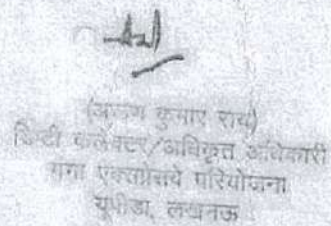 कुमार राय)
डिप्टी कलेक्टर/अधिकृत अधिकारी
गंगा एक्सप्रेसवे परियोजना
यूपीडा, लखनऊ